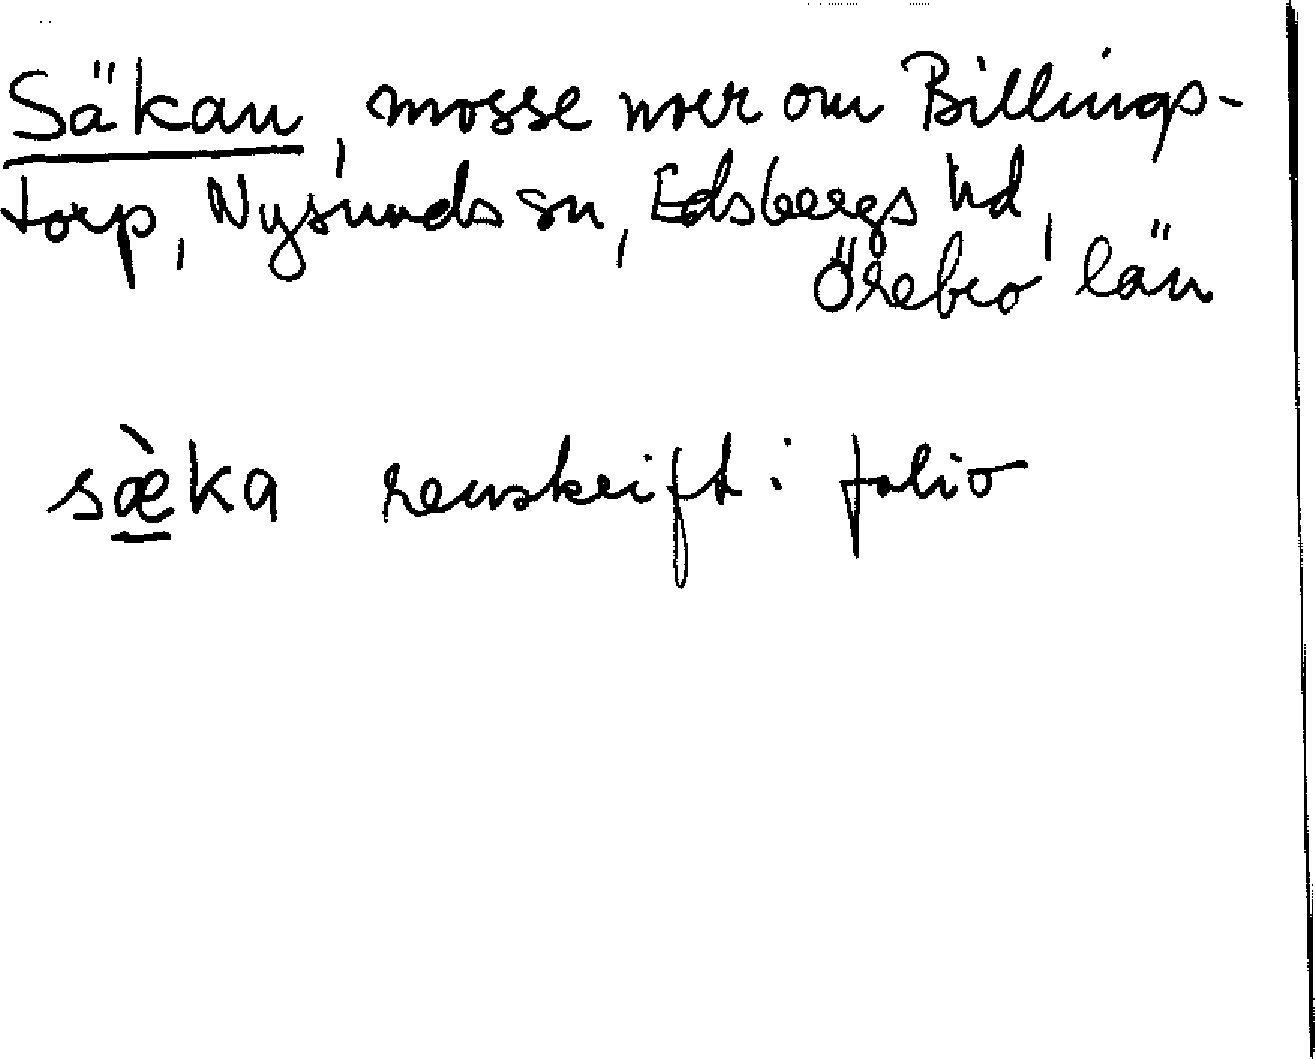 Säkan, mosse norr om Billings-
torp, Nysunds sn, Edsbergs hd,
Örebro län
sæ̀ka renskrift i folio